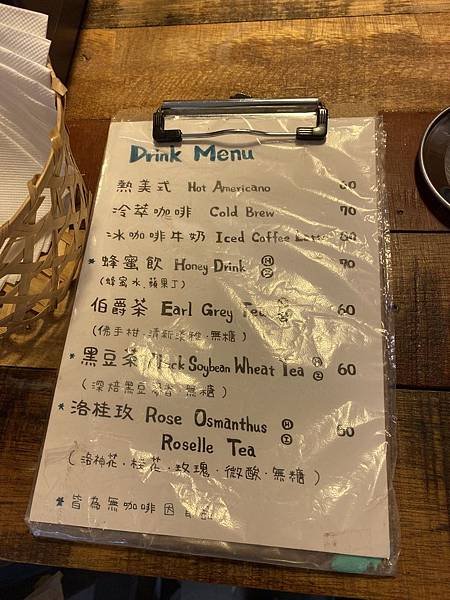 Drink Menu
熱美式 Hot Americano 60
冷萃咖啡 Cold Brew 70
冰咖啡牛奶 Iced Coffee 80
* 蜂蜜飲 Honey Drink Ⓗ Ⓘ 70
(蜂蜜水.蘋果丁)
伯爵茶 Earl Grey Tea 60
(佛手柑.清新淡雅.無糖)
* 黑豆茶 Black Soybean Wheat Tea Ⓗ Ⓘ 60
(深焙黑豆 無糖)
* 洛桂玫 Rose Osmanthus Ⓗ Ⓘ 60
Roselle Tea
(洛神花.桂花.玫瑰.微酸.無糖)
* 皆為無咖啡因